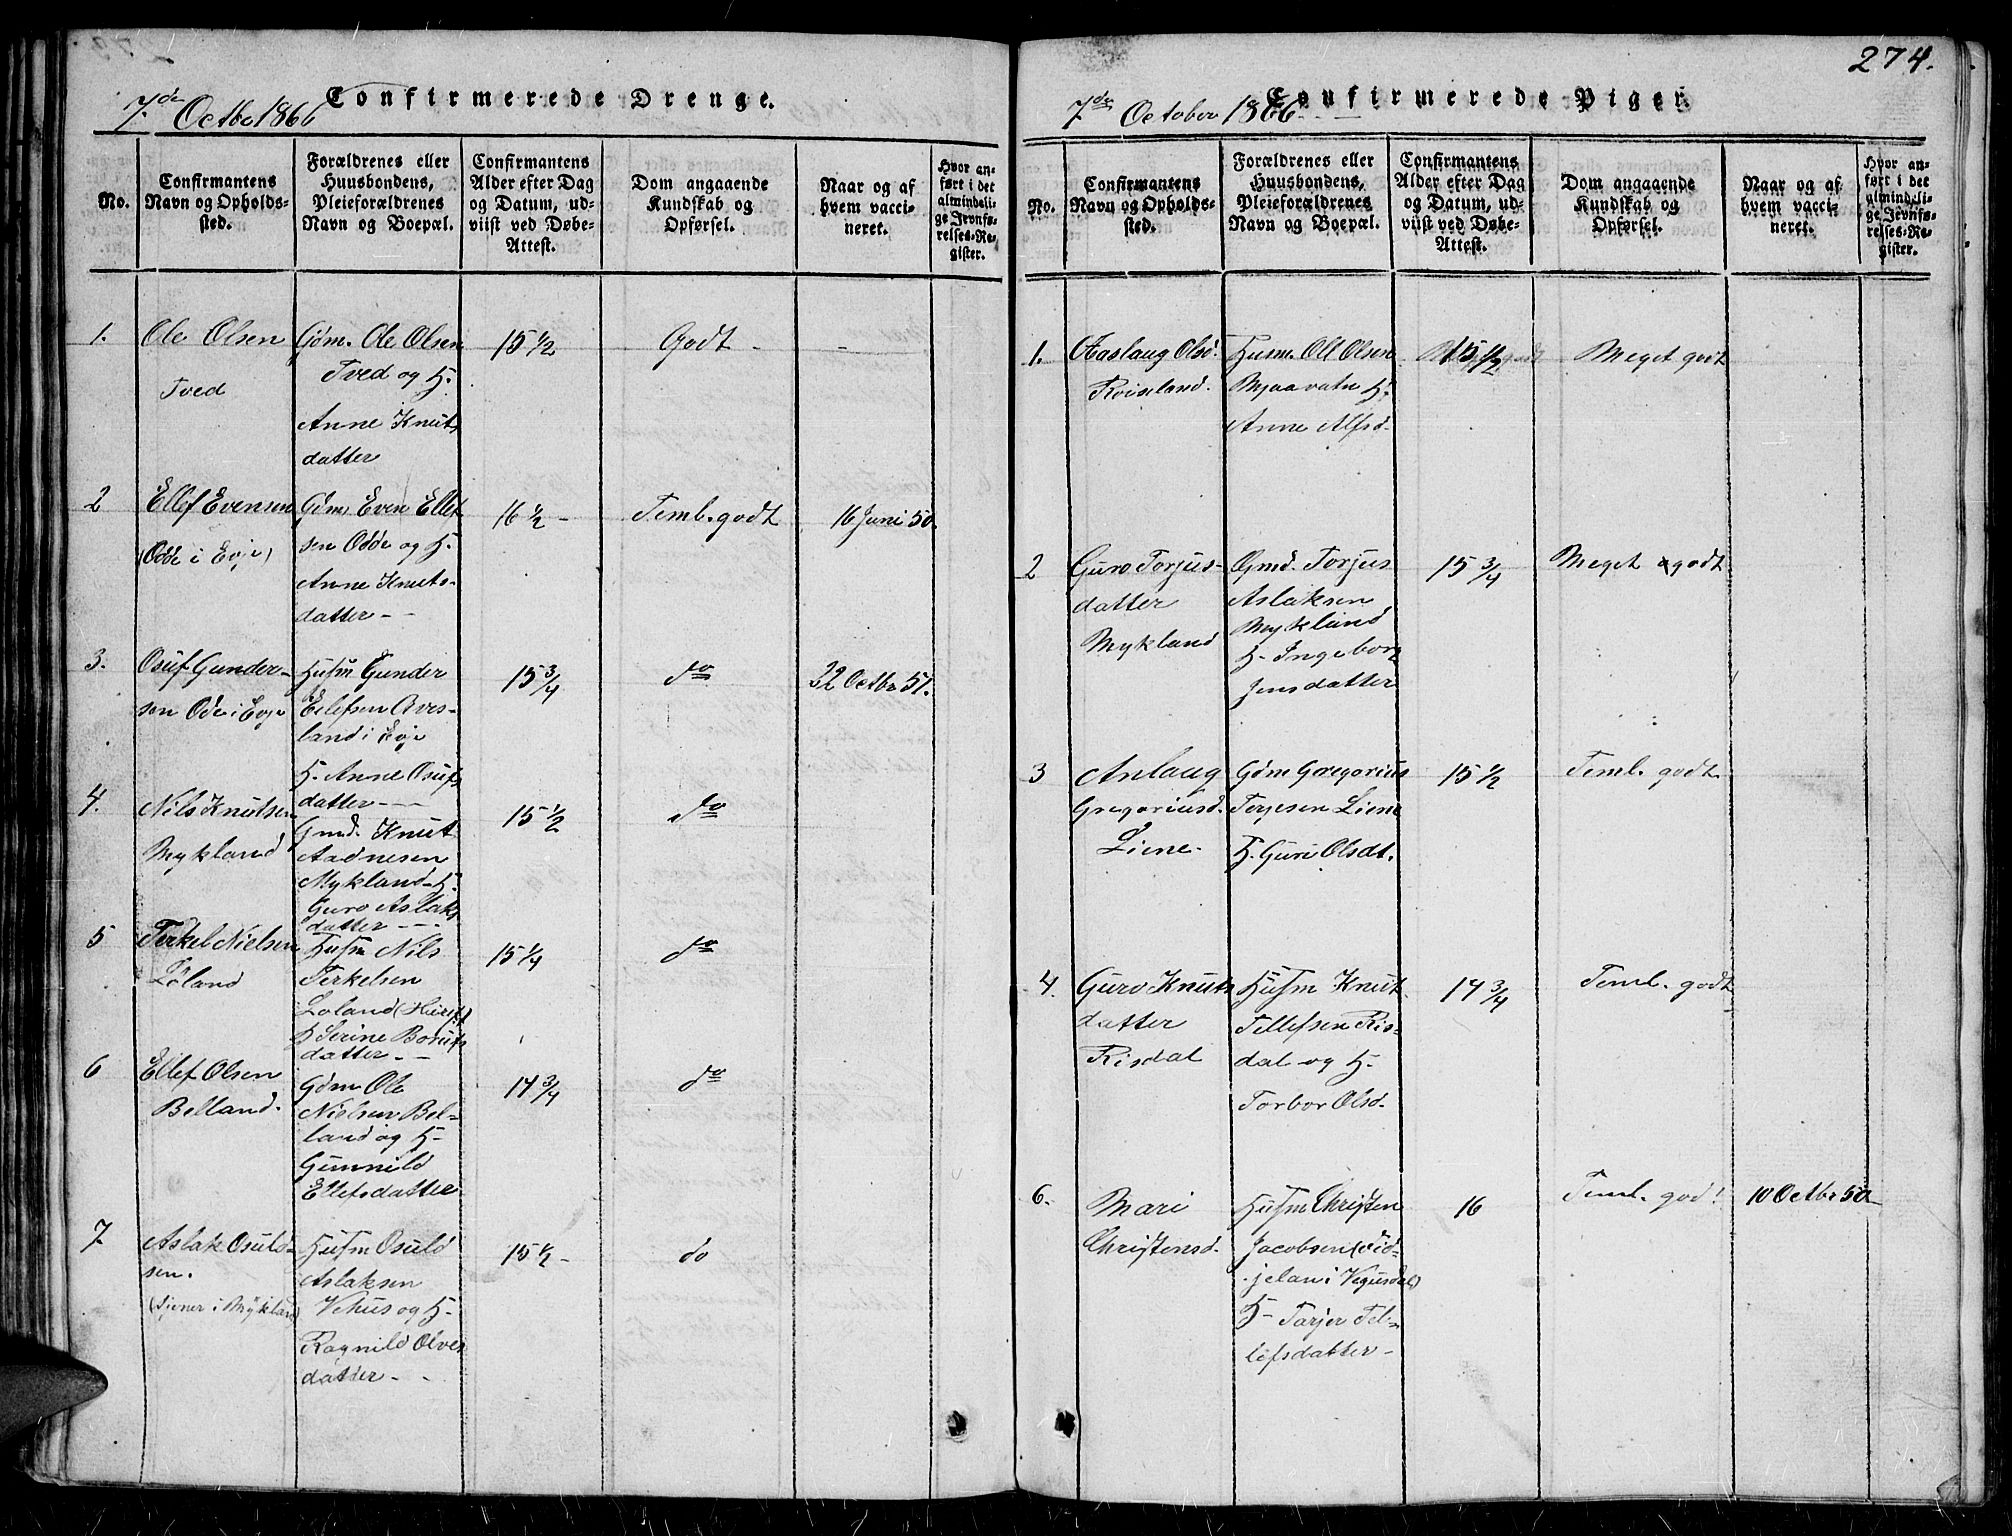 Confirmerede Drenge.
7de Octbr 1866
No.
Confirmantens Navn og Opholds-sted.
Forældrenes eller Huusbondens, Pleieforældrenes Navn og Boepæl.
Confirmantens Alder efter Dag og Datum, ud-viist ved Døbe-Attest.
Dom angaaende Kundskab og Opførsel.
Naar og af hvem vacci-neret.
Hvor an-ført i det almindeli-ge Jevnfø-relses-Re-gister.
1.
Ole Olsen
Tved
Gdm. Ole Olsen
Tved og H.
Anne Knuts
datter
15 1/2
Godt -
-
2
Ellef Evensen
(Odde i Evje)
Gdm Even Ellef
sen Odde og H.
Anne Knuts-
datter - -
16 1/2 -
Teml. godt
16 Juni 50.
3.
Osuf Gunder-
sen Odde i Evje
Husm Gunder
Ellefsen Aves-
land i Evje
H. Anne Osufs
datter - - -
15 3/4
do
22 Octbr 51.
4.
Nils Knutsen
Mykland
Gmd. Knut
Aadnesen
Mykland - H.
Guro Aslaks
datter - - -
15 1/2
do
5
Terkel Nielsen
Løland
Husm Nils
Terkelsen
Løland
H Serine
datter - -
15 1/4
do
6
Ellef Olsen
Belland.
Gdm Ole
Nielsen Bel-
land og H-
Gunnild
Ellefsdatter
14 3/4
do
7
Aslak Osuld-
sen.
(Tjener i Mykland)
Husm Osuld
Aslaksen
Vehus og H-
Ragnild Olves
datter - -
15 1/2 -
do
274.
Confirmerede Piger.
7de October 1866
No.
Confirmantens Navn og Opholds-sted.
Forældrenes eller Huusbondens, Pleieforældrenes Navn og Boepæl.
Confirmantens Alder efter Dag og Datum, ud-viist ved Døbe-Attest.
Dom angaaende Kundskab og Opførsel.
Naar og af hvem vacci-neret.
Hvor an-ført i det almindeli-ge Jevnfø-relses-Re-gister.
1.
Aaslaug Olsd.
Roiseland.
Husm. Ole Olsen
Mjaavatn H.
Anne Alfsd-
15 1/2
Meget godt
2
Guro Torjus-
datter
Mykland
Gmd. Torjus
Aslaksen
Mykland
H- Ingeborg
Jensdatter
15 3/4
Meget godt
3
Anlaug
Gregoriusd.
Liene.
Gdm Gregorius
Terjesen Liene
H. Guri Olsdt.
15 1/2
Teml. godt
4.
Guro Knuts
datter
Risdal
Husm Knut
Tellefsen Ris-
dal og H-
Torbor Olsd-
14 3/4
Teml. godt
6.
Mari
Christensd.
Husm Christen
Jacobsen
i Vegusdal)
H- Tarjer Tel-
lefsdatter -
16
Teml. godt
10 Octbr 50